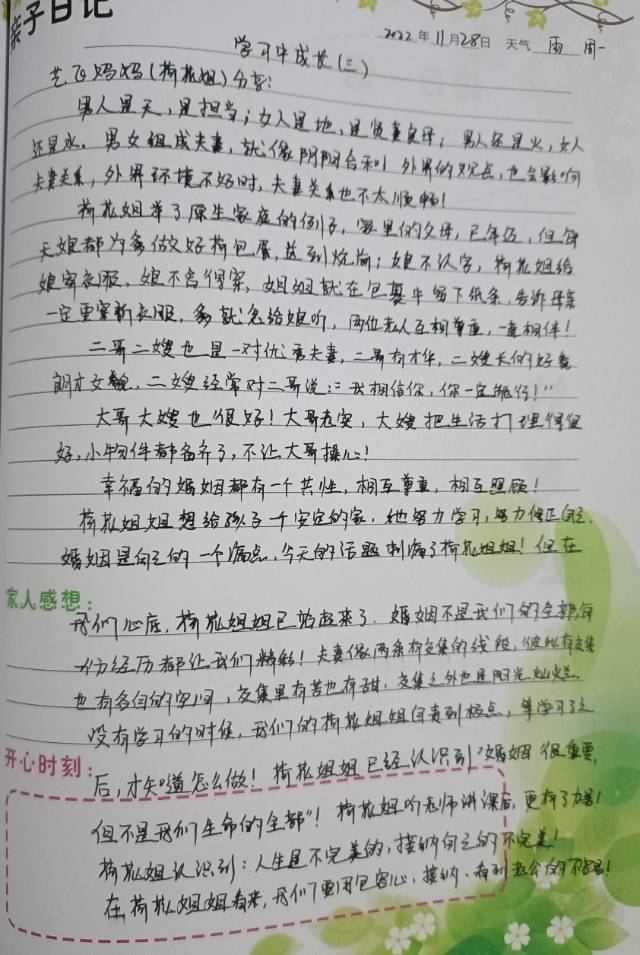 亲子日记
2022年11月28日 天气 雨 周一
学习中成长(三)
艺飞妈妈(荷花姐)分享:
男人是天,是担当;女人是地,是贤妻良母;男人还是火,女人
还是水。男女组成夫妻,就像阴阳合和!外界的观点,也会影响
夫妻关系,外界环境不好时,夫妻关系也不太顺畅!
荷花姐举了原生家庭的例子,家里的父母,已年迈,但每
天娘都为爹做好荷包蛋,送到炕前;娘不认字,荷花姐给
娘寄衣服,娘不舍得穿,姐姐就在包裹中留下纸条,告诉母亲
一定要穿新衣服,爹就念给娘听,两位老人互相尊重,一直相伴!
二哥二嫂也是一对优秀夫妻,二哥有才华,二嫂长的好看
郎才女貌,二嫂经常对二哥说:“我相信你,你一定能行!”
大哥大嫂也很好!大哥老实,大嫂把生活打理得很
好,小物件都备齐了,不让大哥操心!
幸福的婚姻都有一个共性,相互尊重,相互照顾!
荷花姐姐想给孩子一个安定的家,她努力学习,努力修正自己,
婚姻是自己的一个痛点,今天的话题刺痛了荷花姐姐!但在
家人感想:
我们心底,荷花姐姐已站起来了,婚姻不是我们的全部,每
一份经历都让我们精彩!夫妻像两条有交集的线段,彼此有交集
也有各自的空间,交集里有苦也有甜,交集之外也是阳光灿烂。
没有学习的时候,我们的荷花姐姐自责到极点,等学习了之
开心时刻:
后,才知道怎么做!荷花姐姐已经认识到“婚姻很重要,
但不是我们生命的全部”!荷花姐听老师讲课后,更有了力量!
荷花姐认识到:人生是不完美的,接纳自己的不完美!
在荷花姐姐看来,我们要用包容心,接纳、看到老公的不容易!